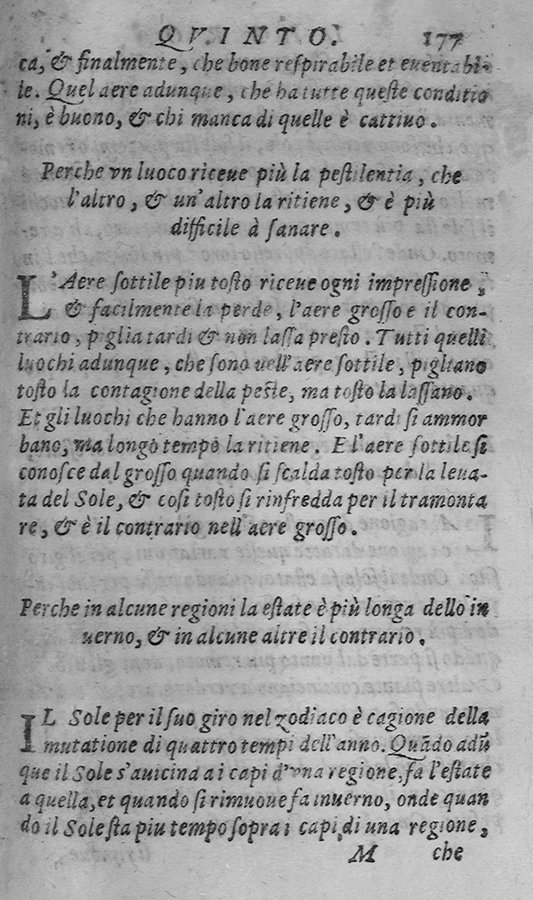 QVINTO. 177
ca, & finalmente, che bone respirabile et euentabi-
le. Quel aere adunque, che ha tutte queste conditio
ni, è buono, & chi manca di quelle è cattiuo.
Perche vn luoco riceue più la pestilentia, che
l'altro, & un'altro la ritiene, & è più
difficile à sanare.
L'Aere sottile piu tosto riceue ogni impressione,
& facilmente la perde, l'aere grosso e il con-
trario, piglia tardi & non lassa presto. Tutti quelli
luochi adunque, che sono nell'aere sottile, pigliano
tosto la contagione della peste, ma tosto la lassano.
Et gli luochi che hanno l'aere grosso, tardi si ammor
bano, ma longo tempo la ritiene. E l'aere sottile si
conosce dal grosso quando si scalda tosto per la leua-
ta del Sole, & cosi tosto si rinfredda per il tramonta
re, & è il contrario nell'aere grosso.
Perche in alcune regioni la estate è più longa dello in
uerno, & in alcune altre il contrario.
IL Sole per il suo giro nel zodiaco è cagione della
mutatione di quattro tempi dell'anno. Quãdo adũ
que il Sole s'auicina a i capi d'vna regione, fa l'estate
a quella, et quando si rimuoue fa inuerno, onde quan
do il Sole sta piu tempo sopra i capi di una regione,
M che